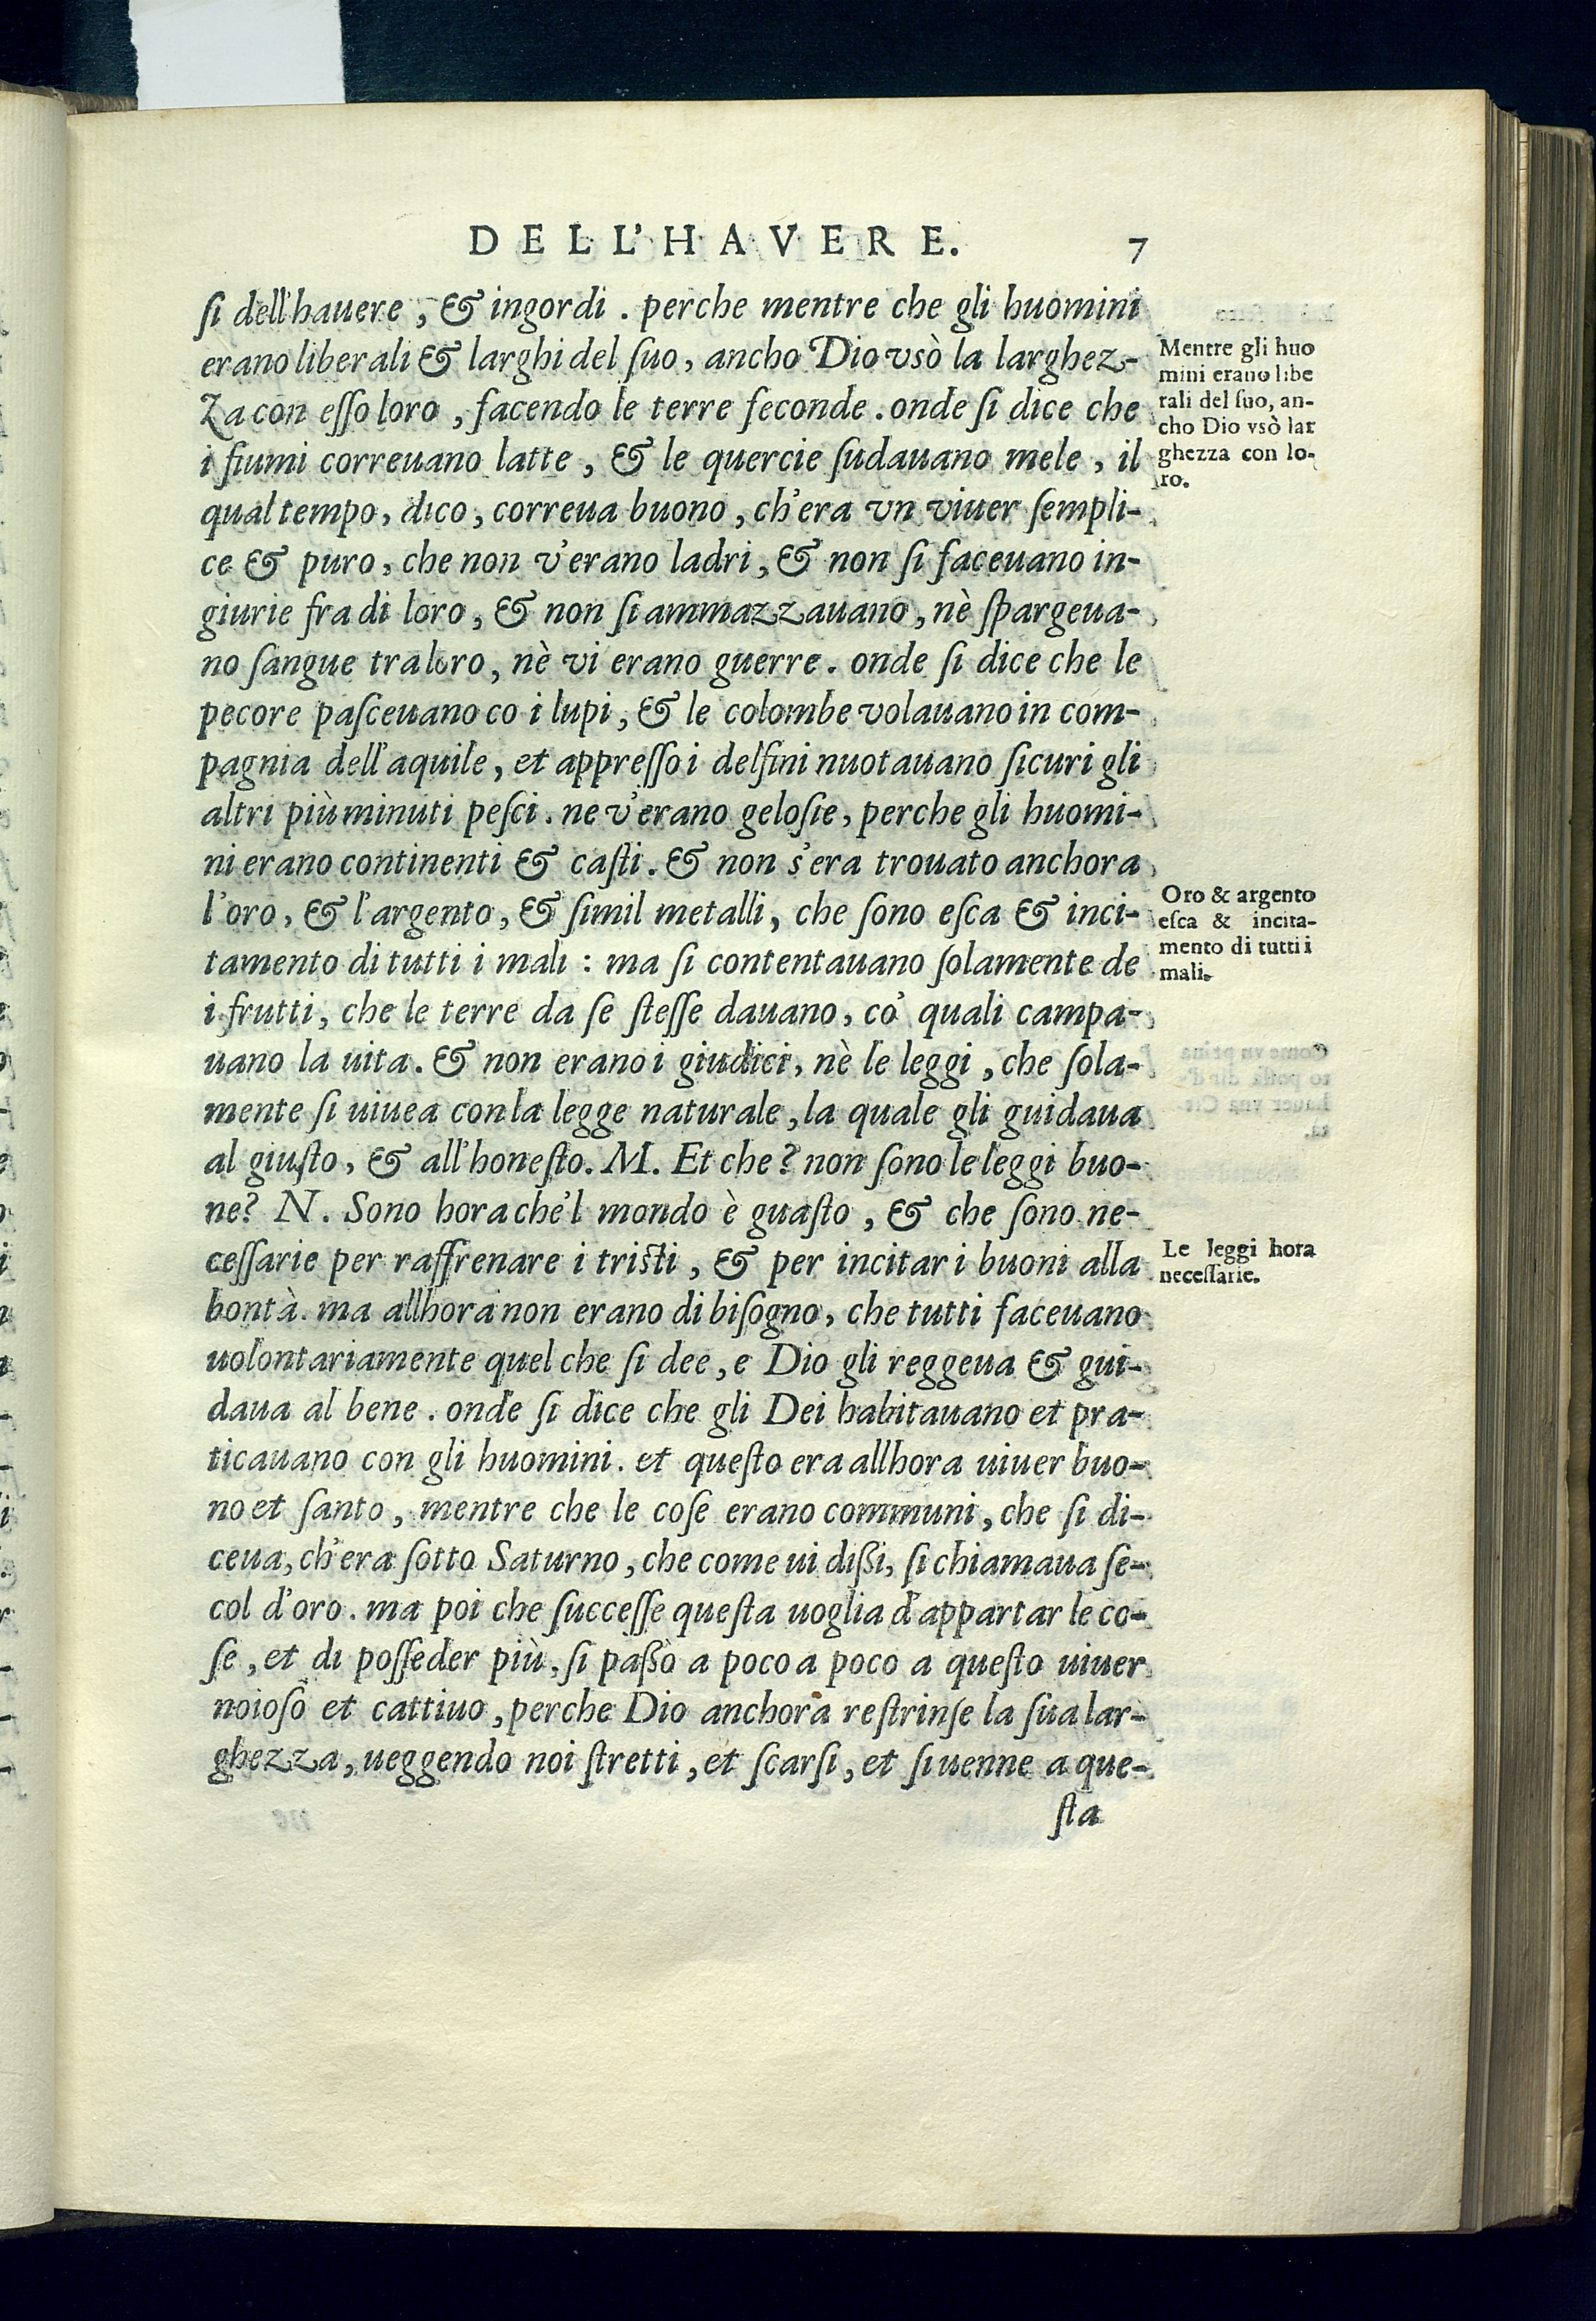 DELL'HAVERE. 7
ſi dell'hauere, & ingordi. perche mentre che gli huomini
erano liberali & larghi del ſuo, ancho Dio vsò la larghez-
za con eſſo loro, facendo le terre feconde. onde ſi dice che
i fiumi correuano latte, & le quercie ſudauano mele, il
qual tempo, dico, correua buono, ch'era vn viuer ſempli-
ce & puro, che non v'erano ladri, & non ſi faceuano in-
giurie fra di loro, & non ſi ammazzauano, nè ſpargeua-
no ſangue tra loro, nè vi erano guerre. onde ſi dice che le
pecore paſceuano co i lupi, & le colombe volauano in com-
pagnia dell'aquile, et appreſſo i delfini nuotauano ſicuri gli
altri più minuti peſci. ne v'erano geloſie, perche gli huomi-
ni erano continenti & caſti. & non s'era trouato anchora
l'oro, & l'argento, & ſimil metalli, che ſono eſca & inci-
tamento di tutti i mali: ma ſi contentauano ſolamente de
i frutti, che le terre da ſe ſteſſe dauano, co' quali campa-
uano la uita. & non erano i giudici, nè le leggi, che ſola-
mente ſi uiuea con la legge naturale, la quale gli guidaua
al giuſto, & all'honeſto. M. Et che? non ſono le leggi buo-
ne? N. Sono hora che'l mondo è guaſto, & che ſono ne-
ceſſarie per raffrenare i triſti, & per incitar i buoni alla
bontà. ma allhora non erano di biſogno, che tutti faceuano
uolontariamente quel che ſi dee, e Dio gli reggeua & gui-
daua al bene. onde ſi dice che gli Dei habitauano et pra-
ticauano con gli huomini. et queſto era allhora uiuer buo-
no et ſanto, mentre che le coſe erano communi, che ſi di-
ceua, ch'era ſotto Saturno, che come ui dißi, ſi chiamaua ſe-
col d'oro. ma poi che ſucceſſe queſta uoglia d'appartar le co-
ſe, et di poſſeder più, ſi paßò a poco a poco a queſto uiuer
noioſo et cattiuo, perche Dio anchora reſtrinſe la ſua lar-
ghezza, ueggendo noi ſtretti, et ſcarſi, et ſi uenne a que-
ſta
Mentre gli huo
mini erano libe
rali del ſuo, an-
cho Dio vsò lar
ghezza con lo-
ro.
Oro & argento
eſca & incita-
mento di tutti i
mali.
Le leggi hora
neceſſarie.